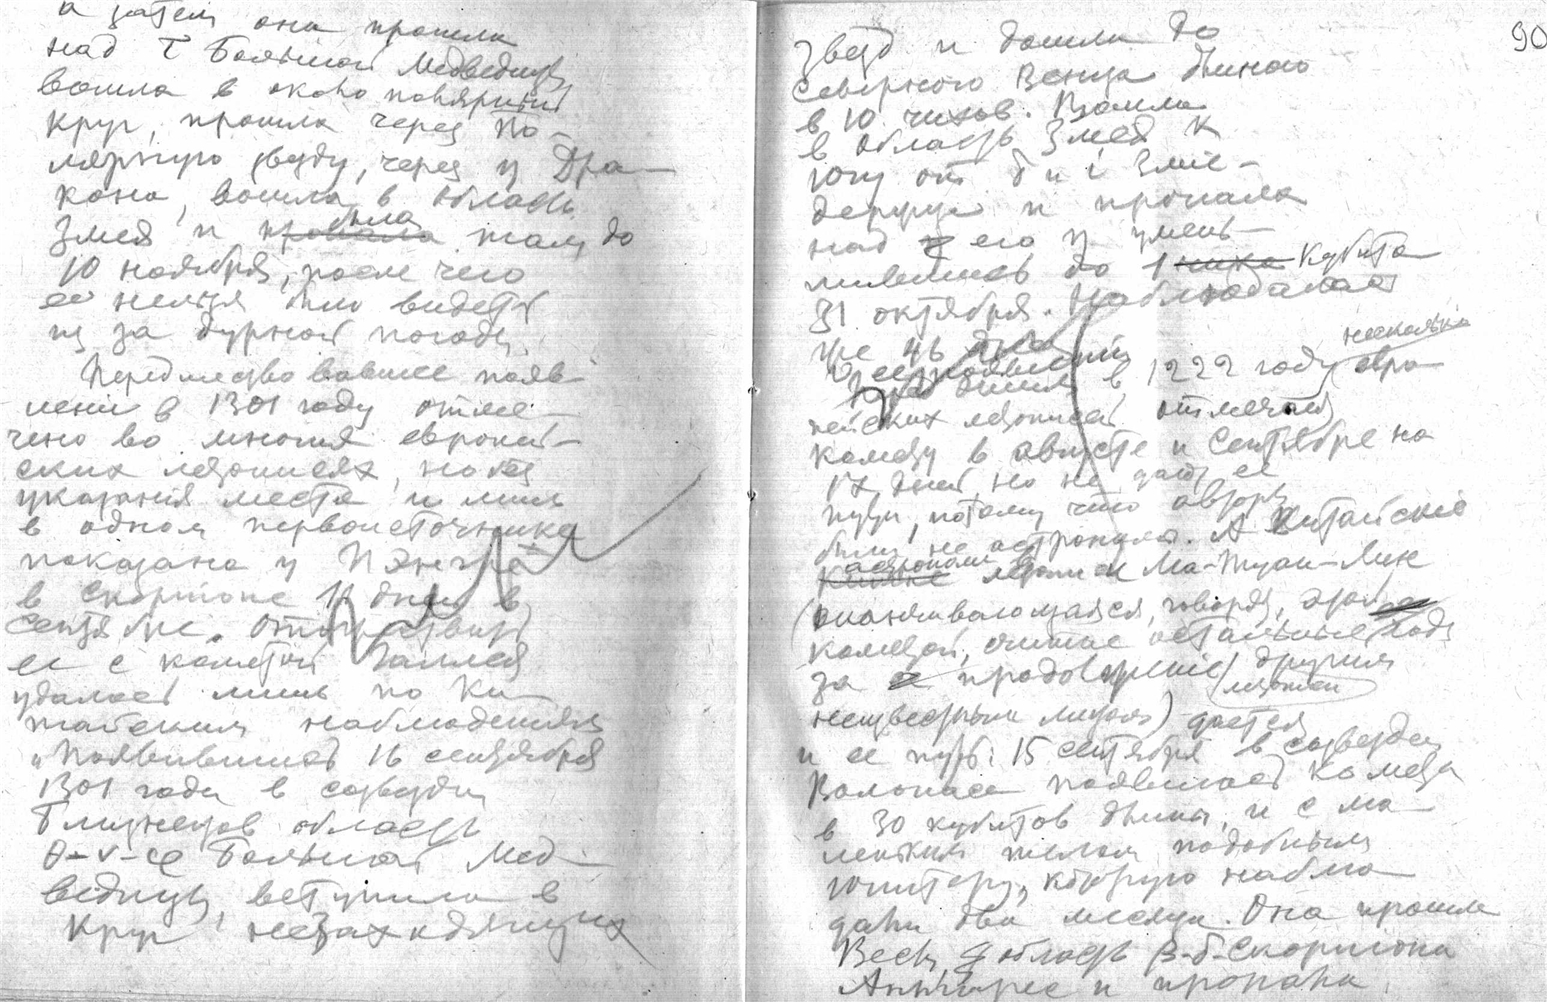 а затем она прошла
над τ Большой Медведицы
вошла в около полярный
круг, прошла через По-
лярную звезду, через η Дра-
кона, вошла в область
Змея и была там до
10 ноября, после чего
ее нельзя было видеть
из за дурной погоды.
Предшествовавшее появ-
ление в 1301 году отме-
чено во многих европей-
ских летописях, но без
указания места и лишь
в одном первоисточнике
показано у Пэнгрэ
в Скорпионе 11 дней в
Сентябре. Отождествить
ее с кометой Галлея
удалось лишь по Ки-
тайским наблюдениям
"Появившись 16 сентября
1301 года в созвездии
Близнецов область
θ-ν-φ Большой Мед-
ведицы, вступила в
Круг незаходящих
90
звезд и дошла до
Северного Венца длиною
в 10 Вошла
в область Змея к
югу от δ и ι Змее-
держца и пропала
над его η умень-
шившись до 1 кубита
31 октября. Наблюдалась
уже 46
в 1222 году несколько евро-
пейских летописей отмечают
комету в августе и Сентябре на
дней но не дают ее
пути, потому что авторы
были не астрономы. А Китайский
астроном летописи Ма-Туан-Лин
(оканчивающаяся, говорят, этой
кометой, считая остальные годы
за продолжение другим
летописи
неизвестным лицом) дается
и ее путь: 15 сентября в созвездии
Волопаса появилась комета
в 30 кубитов длины, и с ма-
леньким телом подобным
Юпитеру, которую наблю-
дали два месяца. Она прошла
Весы, область β-δ-Скорпиона
Антарес и пропала